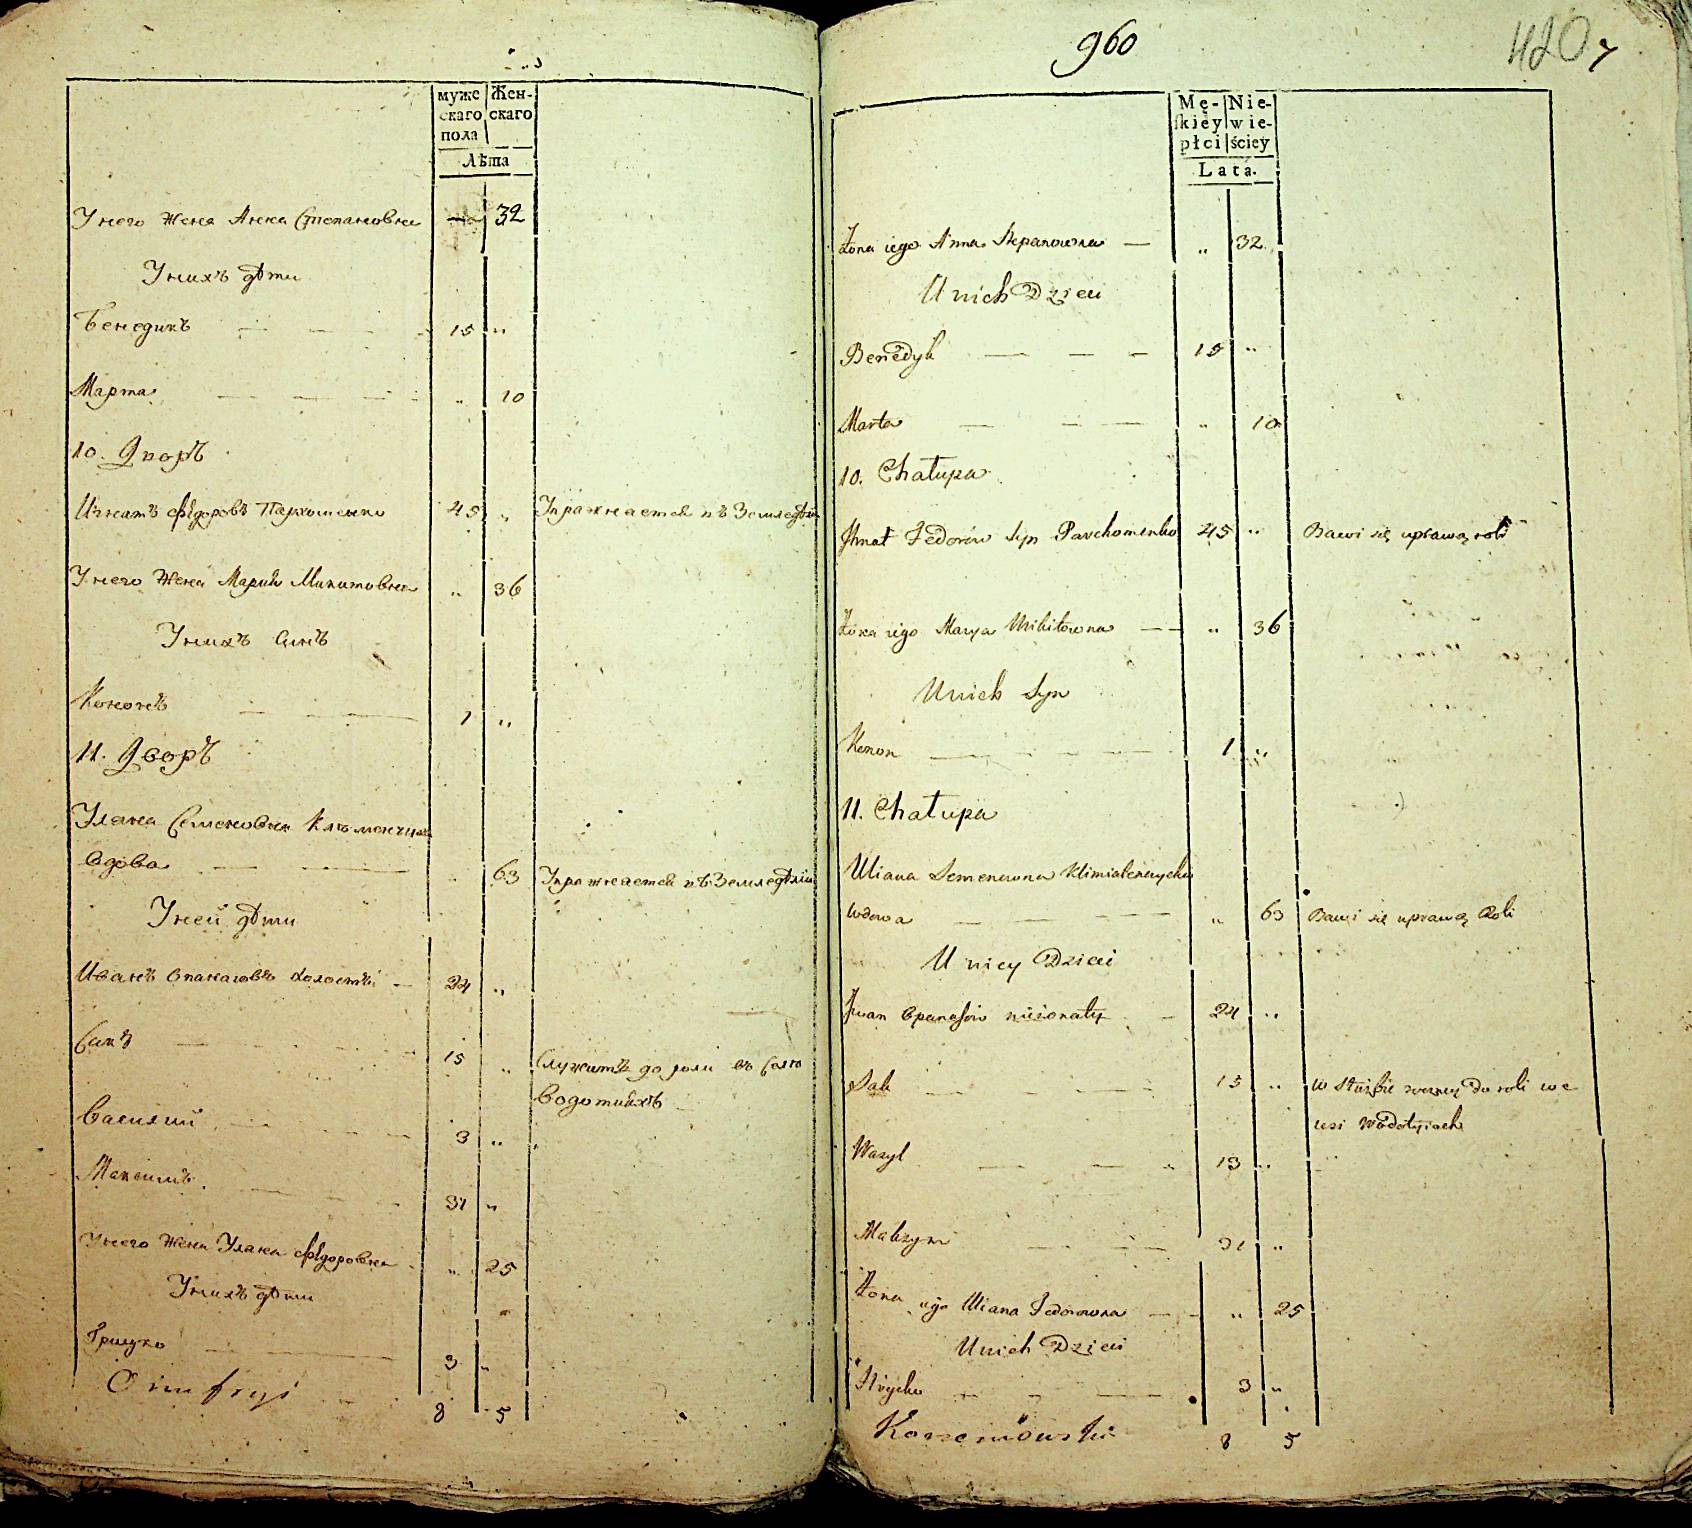 муже Жен-
скаго скаго
пола
Лѣта
Унего жена Анна Степановна — 32
Унихъ дѣти
Бенедикъ 15 "
Марта " 10
10. Дворъ
Игнатъ Фѣдоровъ Пархоменко 45 " Упражнается въ Земледѣлии
Унего жена Мария Микитовна " 36
Унихъ синъ
Кононъ 1 "
11. Дворъ
Уляна Семеновна
вдова " 63 Упражнается въ Земледѣлии
Уней дѣти
Иванъ Опанасовъ холостъ 24 "
Сакъ 15 " Служитъ до роли въ селѣ
Водотияхъ
Василий 3 "
Максимъ 31 "
Унего жена Уляна Фѣдоровна " 25
Унихъ дѣти
Грицко 3 "
Onufryi
8 5
960
420
7
Mę- Nie-
ſkiey wie-
płci ściey
Lata.
Żona iego Anna Stepanowna — " 32
U nich Dzieci
Benedyk 15 "
Marta " 10
10. Chałupa
Ihnat Fedorów Syn Parchomenko 45 " Bawi się uprawą roli
Żona iego Marya Mikitowna " 36
U nich Syn
Konon 1 "
11. Chałupa
Uliana Semenowna
wdowa " 63 Bawi się uprawą Roli
U niey Dzieci
Iwan Opanasów nieżonaty 24 "
Sak 15 " w Służbie do roli we
wsi Wodotyiach
Wasyl 13 "
Maksym 31 "
Żona iego Uliana Fedorowna " 25
U nich Dzieci
Hrycko 3 "
Korzeniowski
8 5